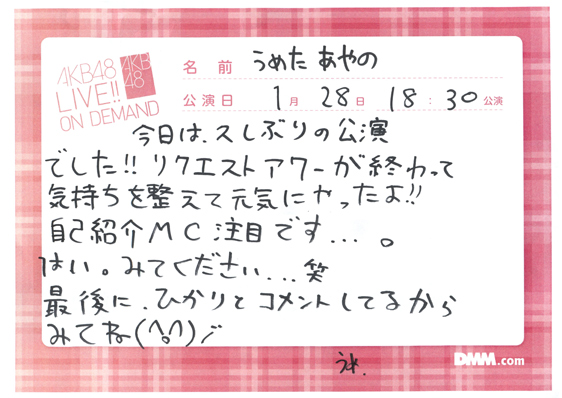 AKB48
LIVE!!
ON DEMAND
AKB
48
名前 うめた あやの
公演日 1月 28日 18:30公演
今日は、久しぶりの公演
でした!! リクエストアワーが終わって
気持ちを整えて元気にやったよ!!
自己紹介MC注目です...。
はい。みてください...笑
最後に、ひかりとコメントしてるから
みてね(^o^)ノ
DMM.com